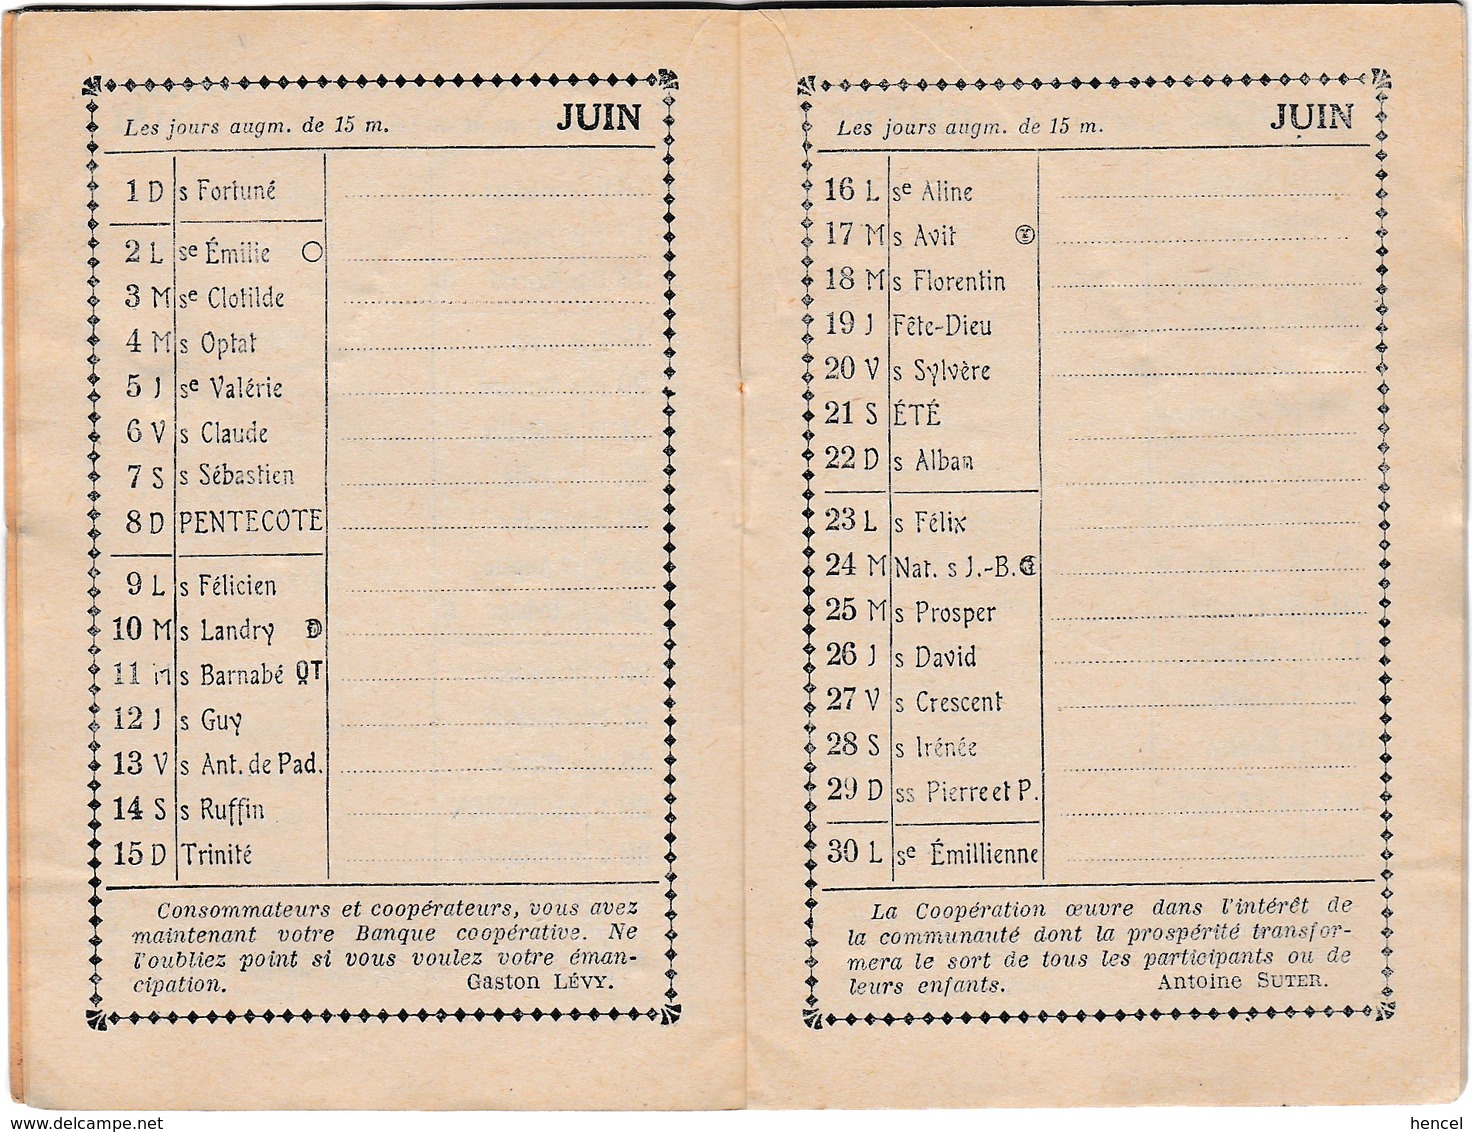 Les jours augm. de 15 m. JUIN
1 D s Fortuné
2 L se Émilie
3 M se Clotilde
4 M s Optat
5 J se Valérie
6 V s Claude
7 S s Sébastien
8 D PENTECOTE
9 L s Félicien
10 M s Landry D
11 M s Barnabé QT
12 J s Guy
13 V s Ant. de Pad.
14 S s Ruffin
15 D Trinité
Consommateurs et coopérateurs, vous avez
maintenant votre Banque coopérative. Ne
l'oubliez point si vous voulez votre éman-
cipation. Gaston LÉVY.
Les jours augm. de 15 m. JUIN
16 L se Aline
17 M s Avit
18 M s Florentin
19 J Fête-Dieu
20 V s Sylvère
21 S ÉTÉ
22 D s Alban
23 L s Félix
24 M Nat. s J.-B.
25 M s Prosper
26 J s David
27 V s Crescent
28 S s Irénée
29 D ss Pierre et P.
30 L se Émillienne
La Coopération œuvre dans l'intérêt de
la communauté dont la prospérité transfor-
mera le sort de tous les participants ou de
leurs enfants. Antoine SUTER.
www.delcampe.net
hencel